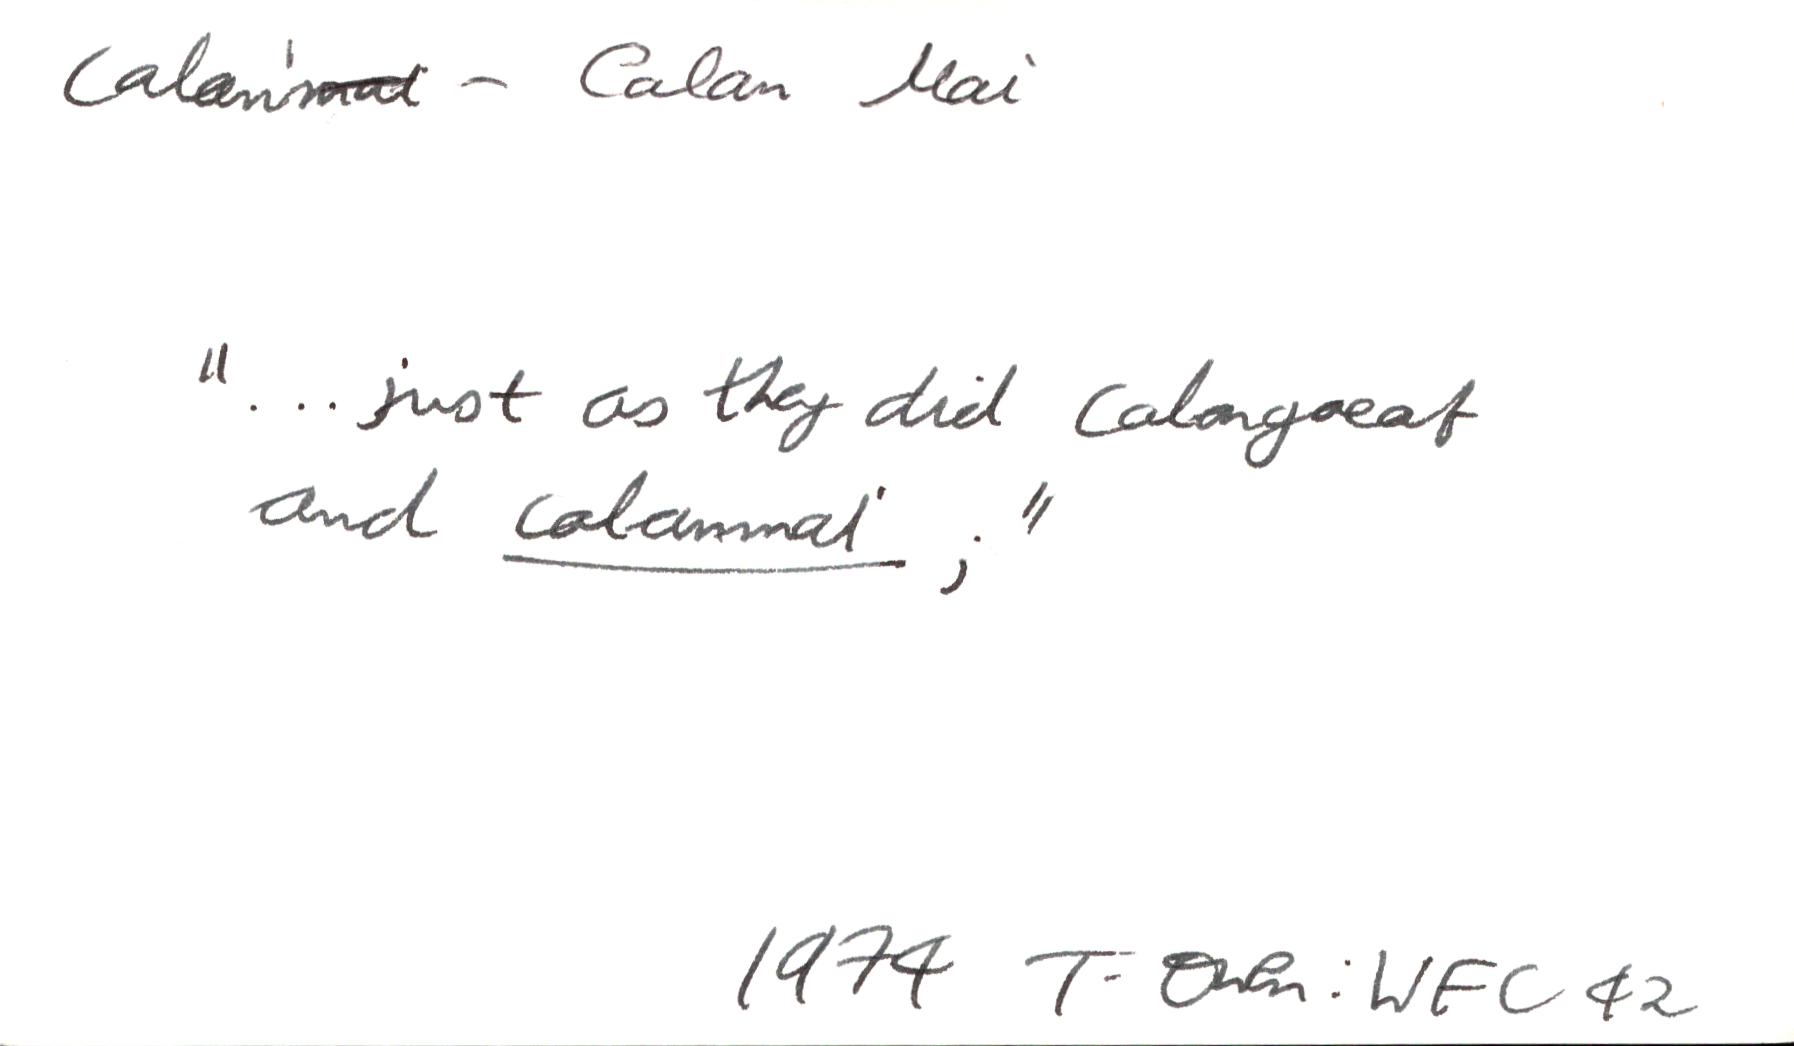 Calanmai - Calan Mai
"... just as they did Calangaeaf
and calanmai ;"
1974 T. Owen: WFC 42